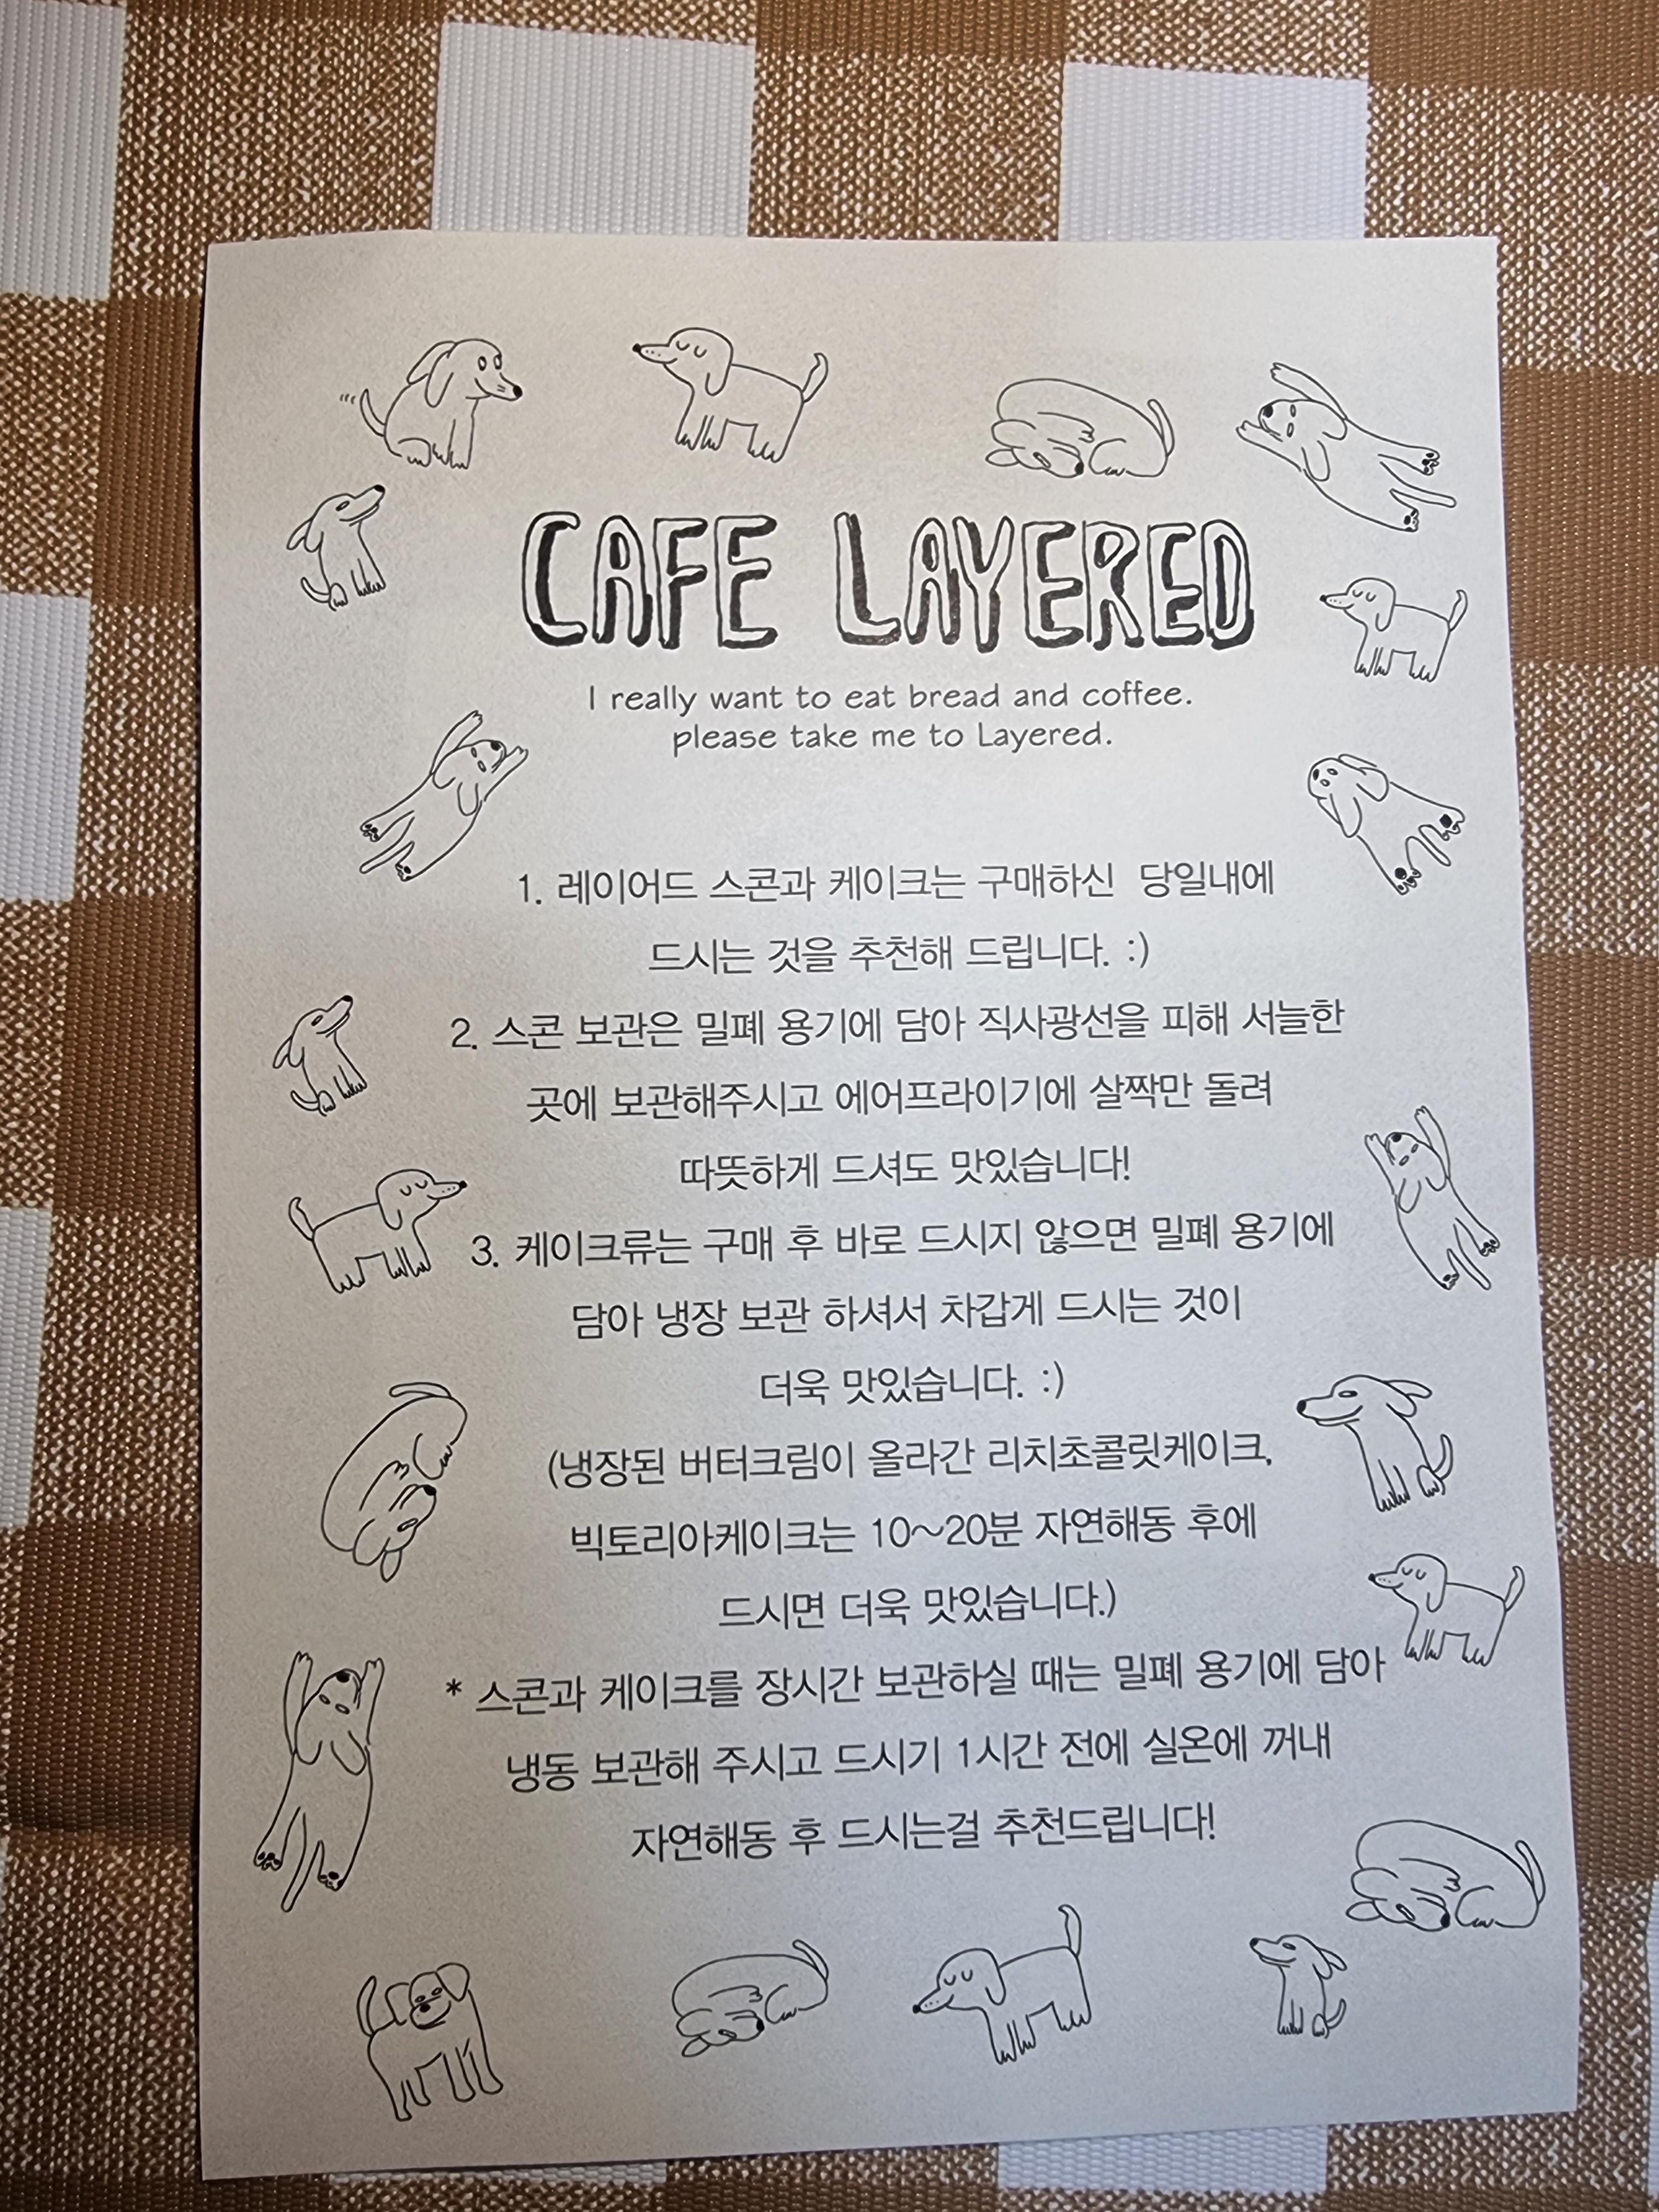 CAFE LAYERED
I really want to eat bread and coffee.
please take me to Layered.
1. 레이어드 스콘과 케이크는 구매하신 당일내에
드시는 것을 추천해 드립니다. :)
2. 스콘 보관은 밀폐 용기에 담아 직사광선을 피해 서늘한
곳에 보관해주시고 에어프라이기에 살짝만 돌려
따뜻하게 드셔도 맛있습니다!
3. 케이크류는 구매 후 바로 드시지 않으면 밀폐 용기에
담아 냉장 보관 하셔서 차갑게 드시는 것이
더욱 맛있습니다. :)
(냉장된 버터크림이 올라간 리치초콜릿케이크,
빅토리아케이크는 10~20분 자연해동 후에
드시면 더욱 맛있습니다.)
* 스콘과 케이크를 장시간 보관하실 때는 밀폐 용기에 담아
냉동 보관해 주시고 드시기 1시간 전에 실온에 꺼내
자연해동 후 드시는걸 추천드립니다!